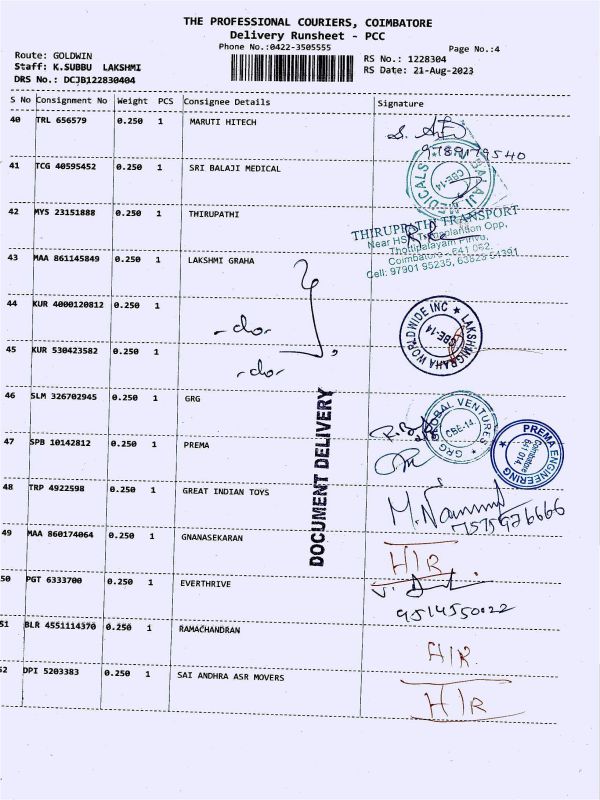 THE PROFESSIONAL COURIERS, COIMBATORE
Delivery Runsheet - PCC
Phone No.:0422-3505555
Page No.:4
Route: GOLDWIN
Staff: K.SUBBU LAKSHMI
DRS No.: DCJB122830404
RS No.: 1228304
RS Date: 21-Aug-2023
S No Consignment No Weight PCS Consignee Details Signature
40 TRL 656579 0.250 1 MARUTI HITECH
9789179540
41 TCG 40595452 0.250 1 SRI BALAJI MEDICAL
BALAJI MEDICALS CBE-14
42 MYS 23151888 0.250 1 THIRUPATHI
THIRUPPATHI TRANSPORT
Coimbatore - 641 062.
43 MAA 861145849 0.250 1 LAKSHMI GRAHA
44 KUR 4000120812 0.250 1 -do-
LAKSHMIGRAHA WORLDWIDE INC ★ CBE-14
45 KUR 530423582 0.250 1 -do-
46 SLM 326702945 0.250 1 GRG
GRG GLOBAL VENTURES ★ CBE-14.
47 SPB 10142812 0.250 1 PREMA
PREMA ENGINEERING ★ Coimbatore 641 014.
DOCUMENT DELIVERY
48 TRP 4922598 0.250 1 GREAT INDIAN TOYS
49 MAA 860174064 0.250 1 GNANASEKARAN
H/R
50 PGT 6333700 0.250 1 EVERTHRIVE
9514550022
51 BLR 4551114370 0.250 1 RAMACHANDRAN
H/R
52 DPI 5203383 0.250 1 SAI ANDHRA ASR MOVERS
H/R